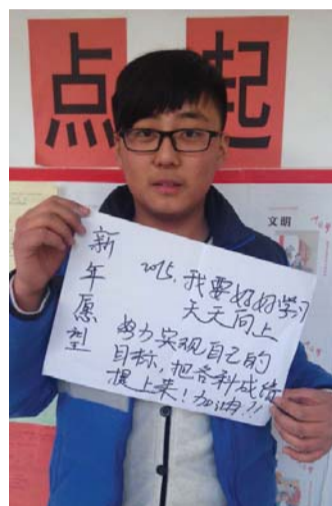 点 起
文明
新年愿型
2015，我要好好学习
天天向上
努力实观自己的
目标，把各科成绩
提上来！加油！！